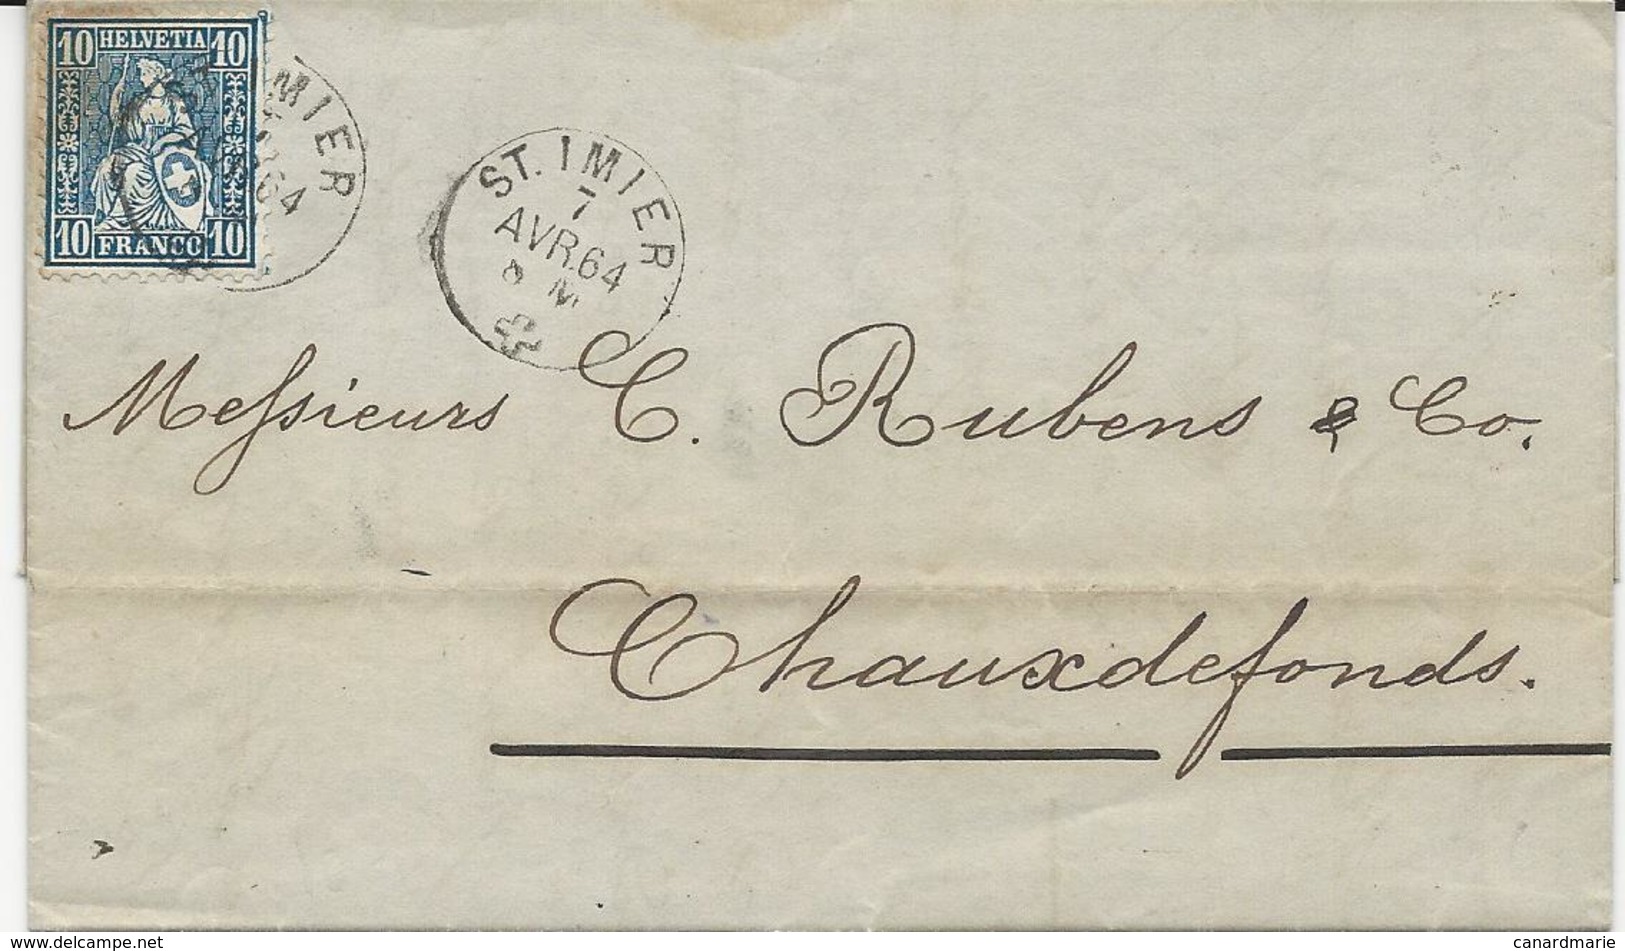 10 HELVETIA 10
10 FRANCO 10
MIER
64
ST. IMIER
7
AVR. 64
M
Messieurs C. Rubens & Co.
Chauxdefonds.
www.delcampe.net
canardmarie